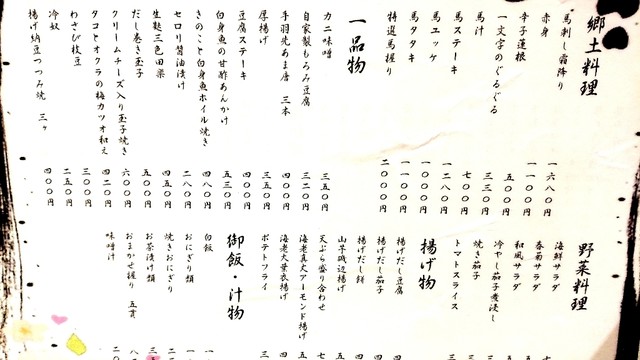 郷土料理
馬刺し霜降り 一六八〇円
赤身 一一〇〇円
辛子蓮根 五〇〇円
一文字のぐるぐる 三三〇円
馬汁 七〇〇円
馬ステーキ 一二八〇円
馬ユッケ 一〇〇〇円
馬タタキ 一一〇〇円
特選馬握り 二〇〇〇円
一品物
カニ味噌 三五〇円
自家製もろみ豆腐 三二〇円
手羽先あま唐 三本 四〇〇円
厚揚げ 三五〇円
豆腐ステーキ 四〇〇円
白身魚の甘酢あんかけ 五三〇円
きのこと白身魚ホイル焼き 四八〇円
セロリ醤油漬け 二八〇円
生麩三色田楽 四五〇円
だし巻き玉子 五〇〇円
クリームチーズ入り玉子焼き 六〇〇円
タコとオクラの梅カツオ和え 四二〇円
わさび枝豆 三〇〇円
冷奴 二五〇円
揚げ納豆つつみ焼 三ヶ 四〇〇円
野菜料理
海鮮サラダ
春菊サラダ
和風サラダ
冷やし茄子煮浸し
焼き茄子
トマトスライス
揚げ物
揚げだし豆腐
揚げだし茄子
揚げだし餅
山芋磯辺揚げ
天ぷら盛り合わせ
海老真丈アーモンド揚げ
海老大葉衣揚げ
ポテトフライ
御飯・汁物
白飯
おにぎり類
焼きおにぎり
お茶漬け類
おまかせ握り 五貫
味噌汁